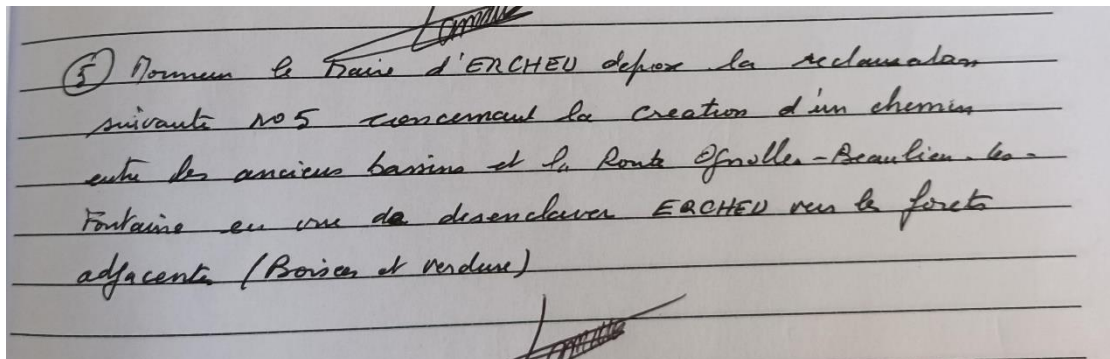 ⑤ Monsieur le Maire d'ERCHEU depose la reclamation
suivante no 5 concernant la creation d'un chemin
entre les anciens bassins et la Route Ognolles-Beaulieu-les-
Fontaine en vue de desenclaver ERCHEU vers les forets
adjacentes (Boisées et verdure)